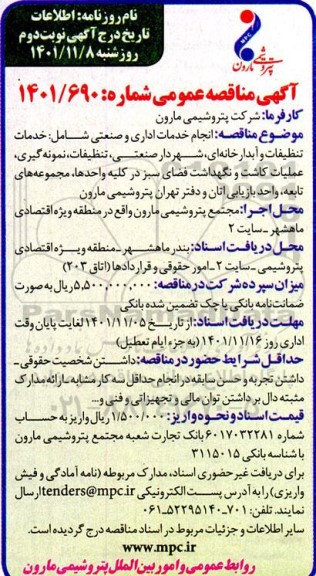 نام روزنامه: اطلاعات
تاریخ درج آگهی نوبت دوم
روز شنبه ۱۴۰۱/۱۱/۸
MPC
پتروشیمی مارون
آگهی مناقصه عمومی شماره: ۱۴۰۱/۶۹۰
کارفرما: شرکت پتروشیمی مارون
موضوع مناقصه: انجام خدمات اداری و صنعتی شامل: خدمات
تنظیفات و آبدارخانه‌ای، شهردار صنعتی، تنظیفات، نمونه گیری،
عملیات کاشت و نگهداشت فضای سبز در کلیه واحدها، مجموعه‌های
تابعه، واحد بازیابی اتان و دفتر تهران پتروشیمی مارون
محل اجرا: مجتمع پتروشیمی مارون واقع در منطقه ویژه اقتصادی
ماهشهر ـ سایت ۲
محل دریافت اسناد: بندر ماهشهر ـ منطقه ویژه اقتصادی
پتروشیمی ـ سایت ۲ ـ امور حقوقی و قراردادها (اتاق ۲۰۳)
میزان سپرده شرکت در مناقصه: ۵,۵۰۰,۰۰۰,۰۰۰ ریال به صورت
ضمانت‌نامه بانکی یا چک تضمین شده بانکی
مهلت دریافت اسناد: از تاریخ ۱۴۰۱/۱۱/۰۵ لغایت پایان وقت
اداری روز ۱۴۰۱/۱۱/۱۶ (به جزء ایام تعطیل)
حداقل شرایط حضور در مناقصه: داشتن شخصیت حقوقی ـ
داشتن تجربه و حسن سابقه در انجام حداقل سه کار مشابه ـ ارائه مدارک
مثبته دال بر داشتن توان مالی و تجهیزاتی و فنی و...
قیمت اسناد و نحوه واریز: ۱/۵۰۰/۰۰۰ ریال واریز به حساب
شماره ۶۰۱۷۰۳۲۲۸۱ بانک تجارت شعبه مجتمع پتروشیمی مارون
با شناسه بانکی ۳۱۱۵۰۱۵
برای دریافت غیر حضوری اسناد، مدارک مربوطه (نامه آمادگی و فیش
واریزی) را به آدرس پست الکترونیکی tenders@mpc.ir ارسال
نمایند. تلفن: ۷۰۱-۵۲۲۹۵۱۴۰-۰۶۱
سایر اطلاعات و جزئیات مربوط در اسناد مناقصه درج گردیده است.
www.mpc.ir
روابط عمومی و امور بین الملل پتروشیمی مارون